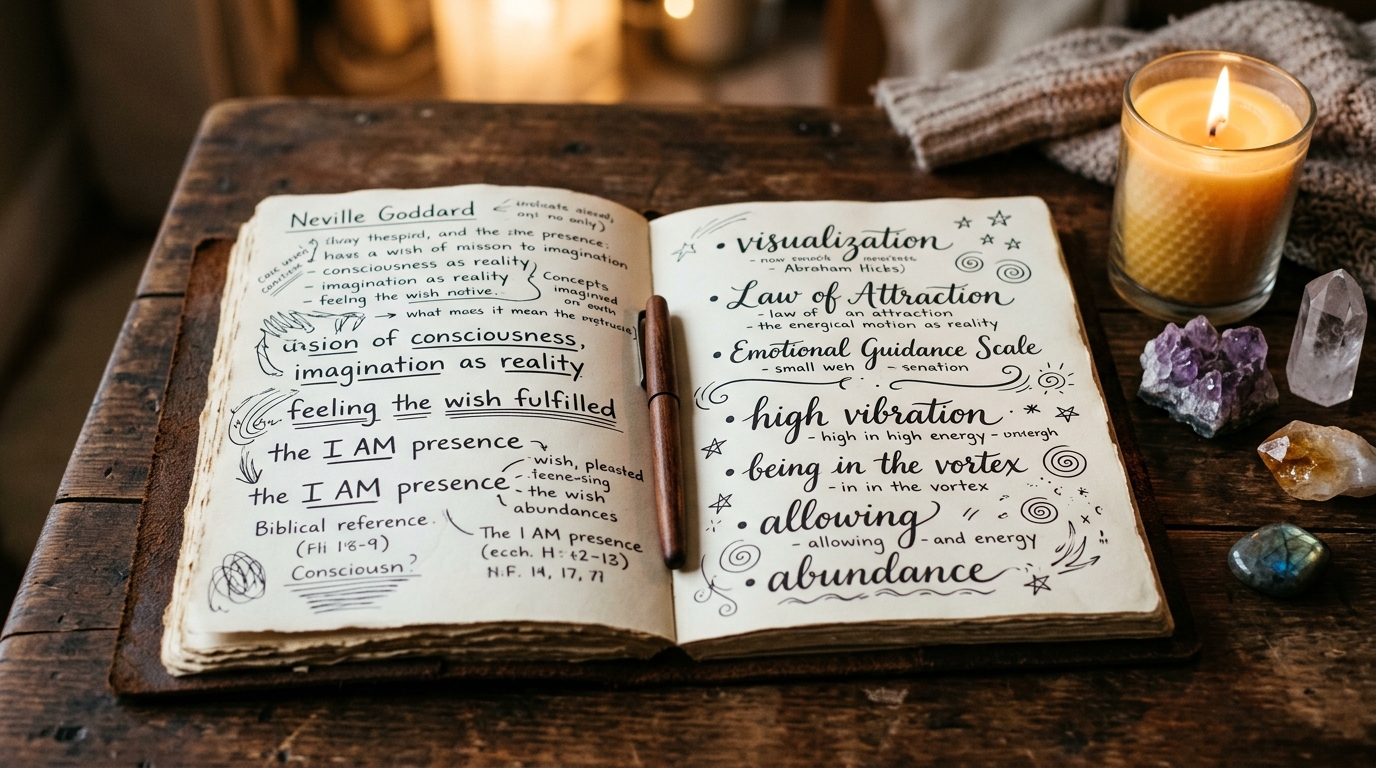 Neville Goddard
only)
and the presence:
have a wish of misson to imagination
- consciousness as reality
- imagination as reality
- feeling the wish notive.
Concepts
imagined
on earth
→ what moes it mean the
of consciousness,
imagination as reality
feeling the wish fulfilled
the I AM presence
the I AM presence
- wish, pleasted
- the wish
abundances
Biblical reference.
Consciousn?
The I AM presence
N.F. 14, 17, 71
• visualization
- Abraham Hicks)
• Law of Attraction
- law of an attraction
- the energical motion as reality
• Emotional Guidance Scale
- small weh - senation
• high vibration
- high in high energy -
• being in the vortex
- in in the vortex
• allowing
- allowing - and energy
• abundance